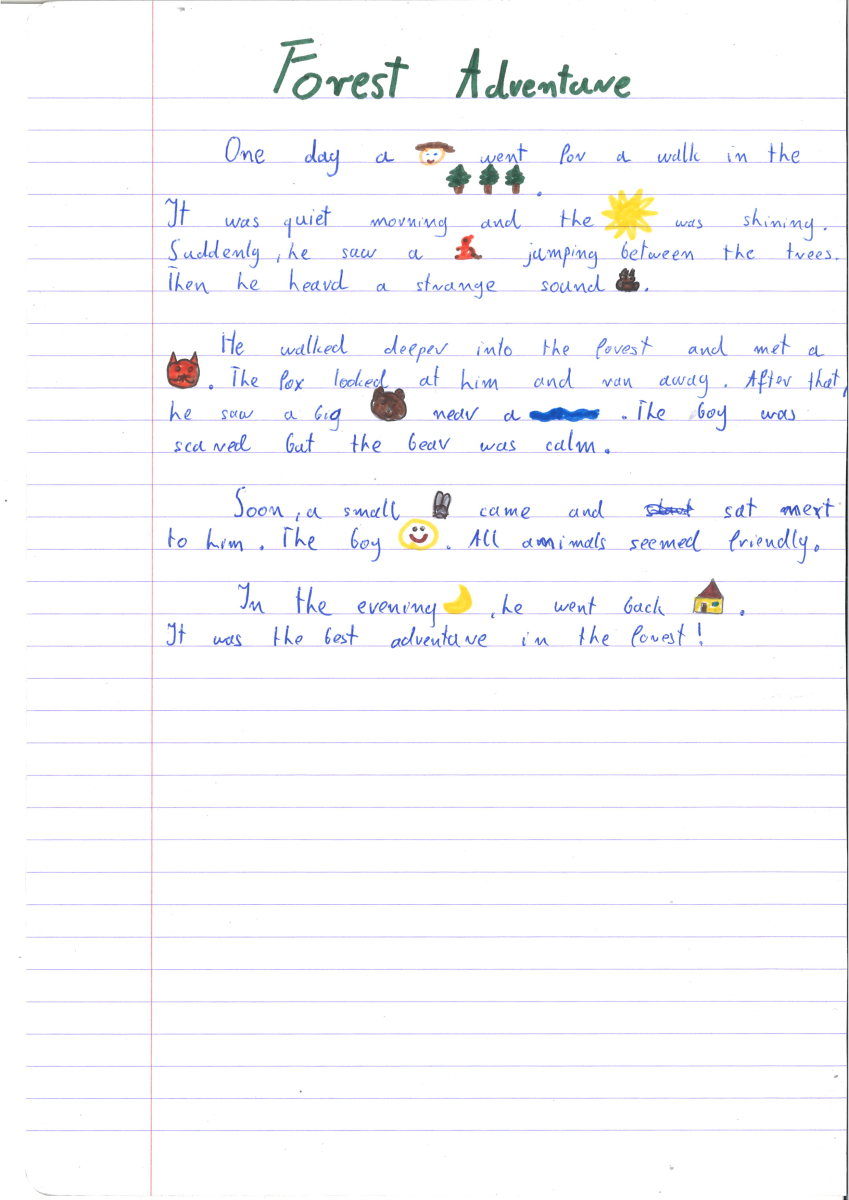 Forest Adventure
One day a went for a walk in the
.
It was quiet morning and the was shining.
Suddenly, he saw a jumping between the trees.
Then he heard a strange sound .
He walked deeper into the forest and met a
. The fox looked at him and ran away. After that,
he saw a big near a . The boy was
scared but the bear was calm.
Soon, a small came and sat next
to him. The boy . All animals seemed friendly.
In the evening , he went back .
It was the best adventure in the forest!